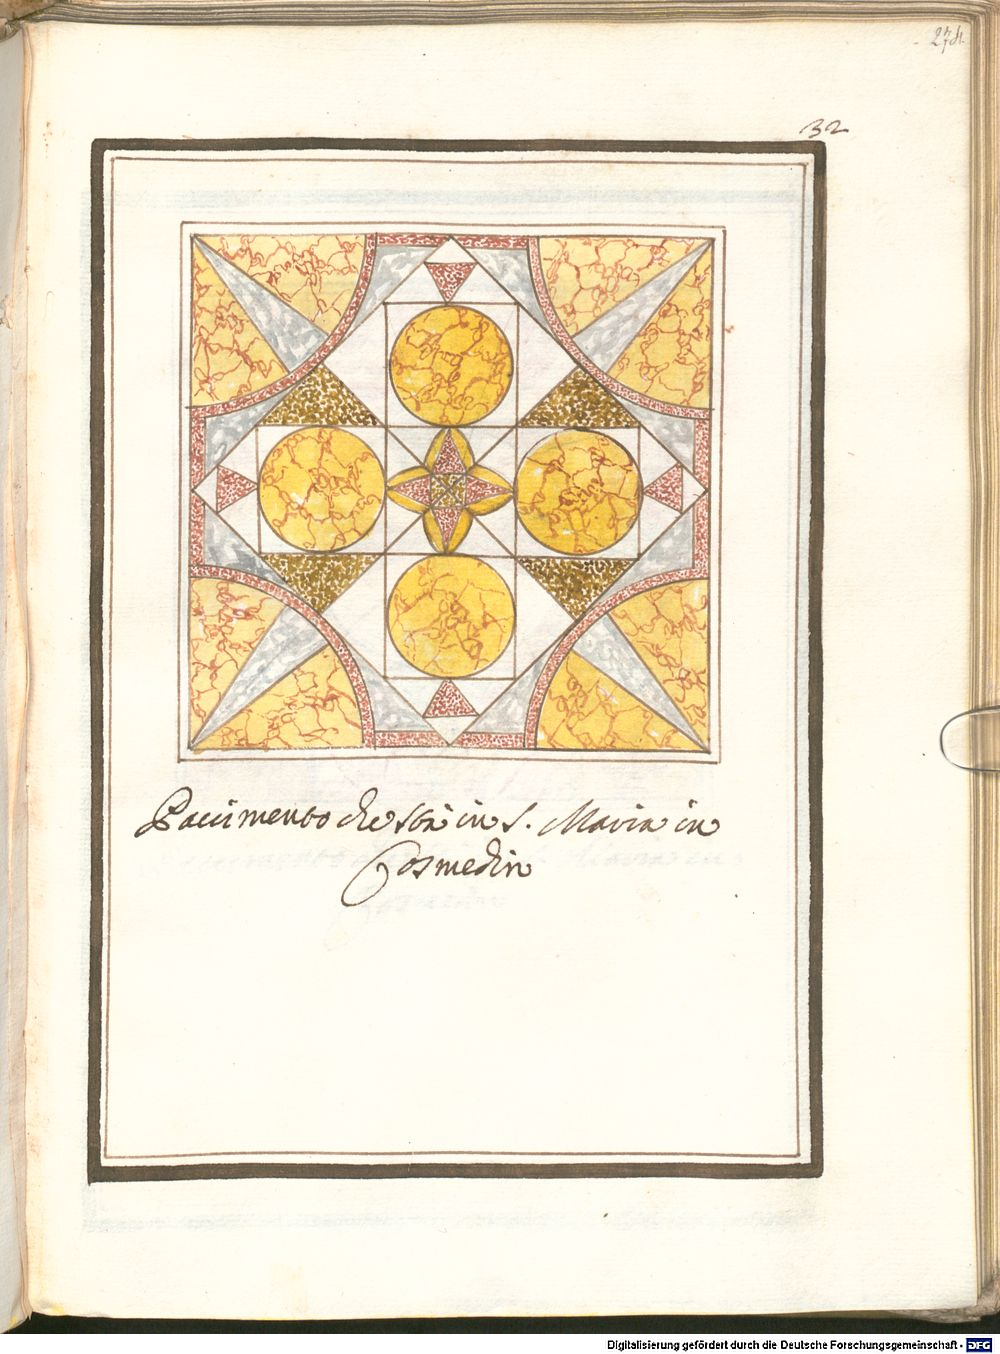 274.
32
Pauimento che sta in S. Maria in
Cosmedin
Digitalisierung gefördert durch die Deutsche Forschungsgemeinschaft - DFG